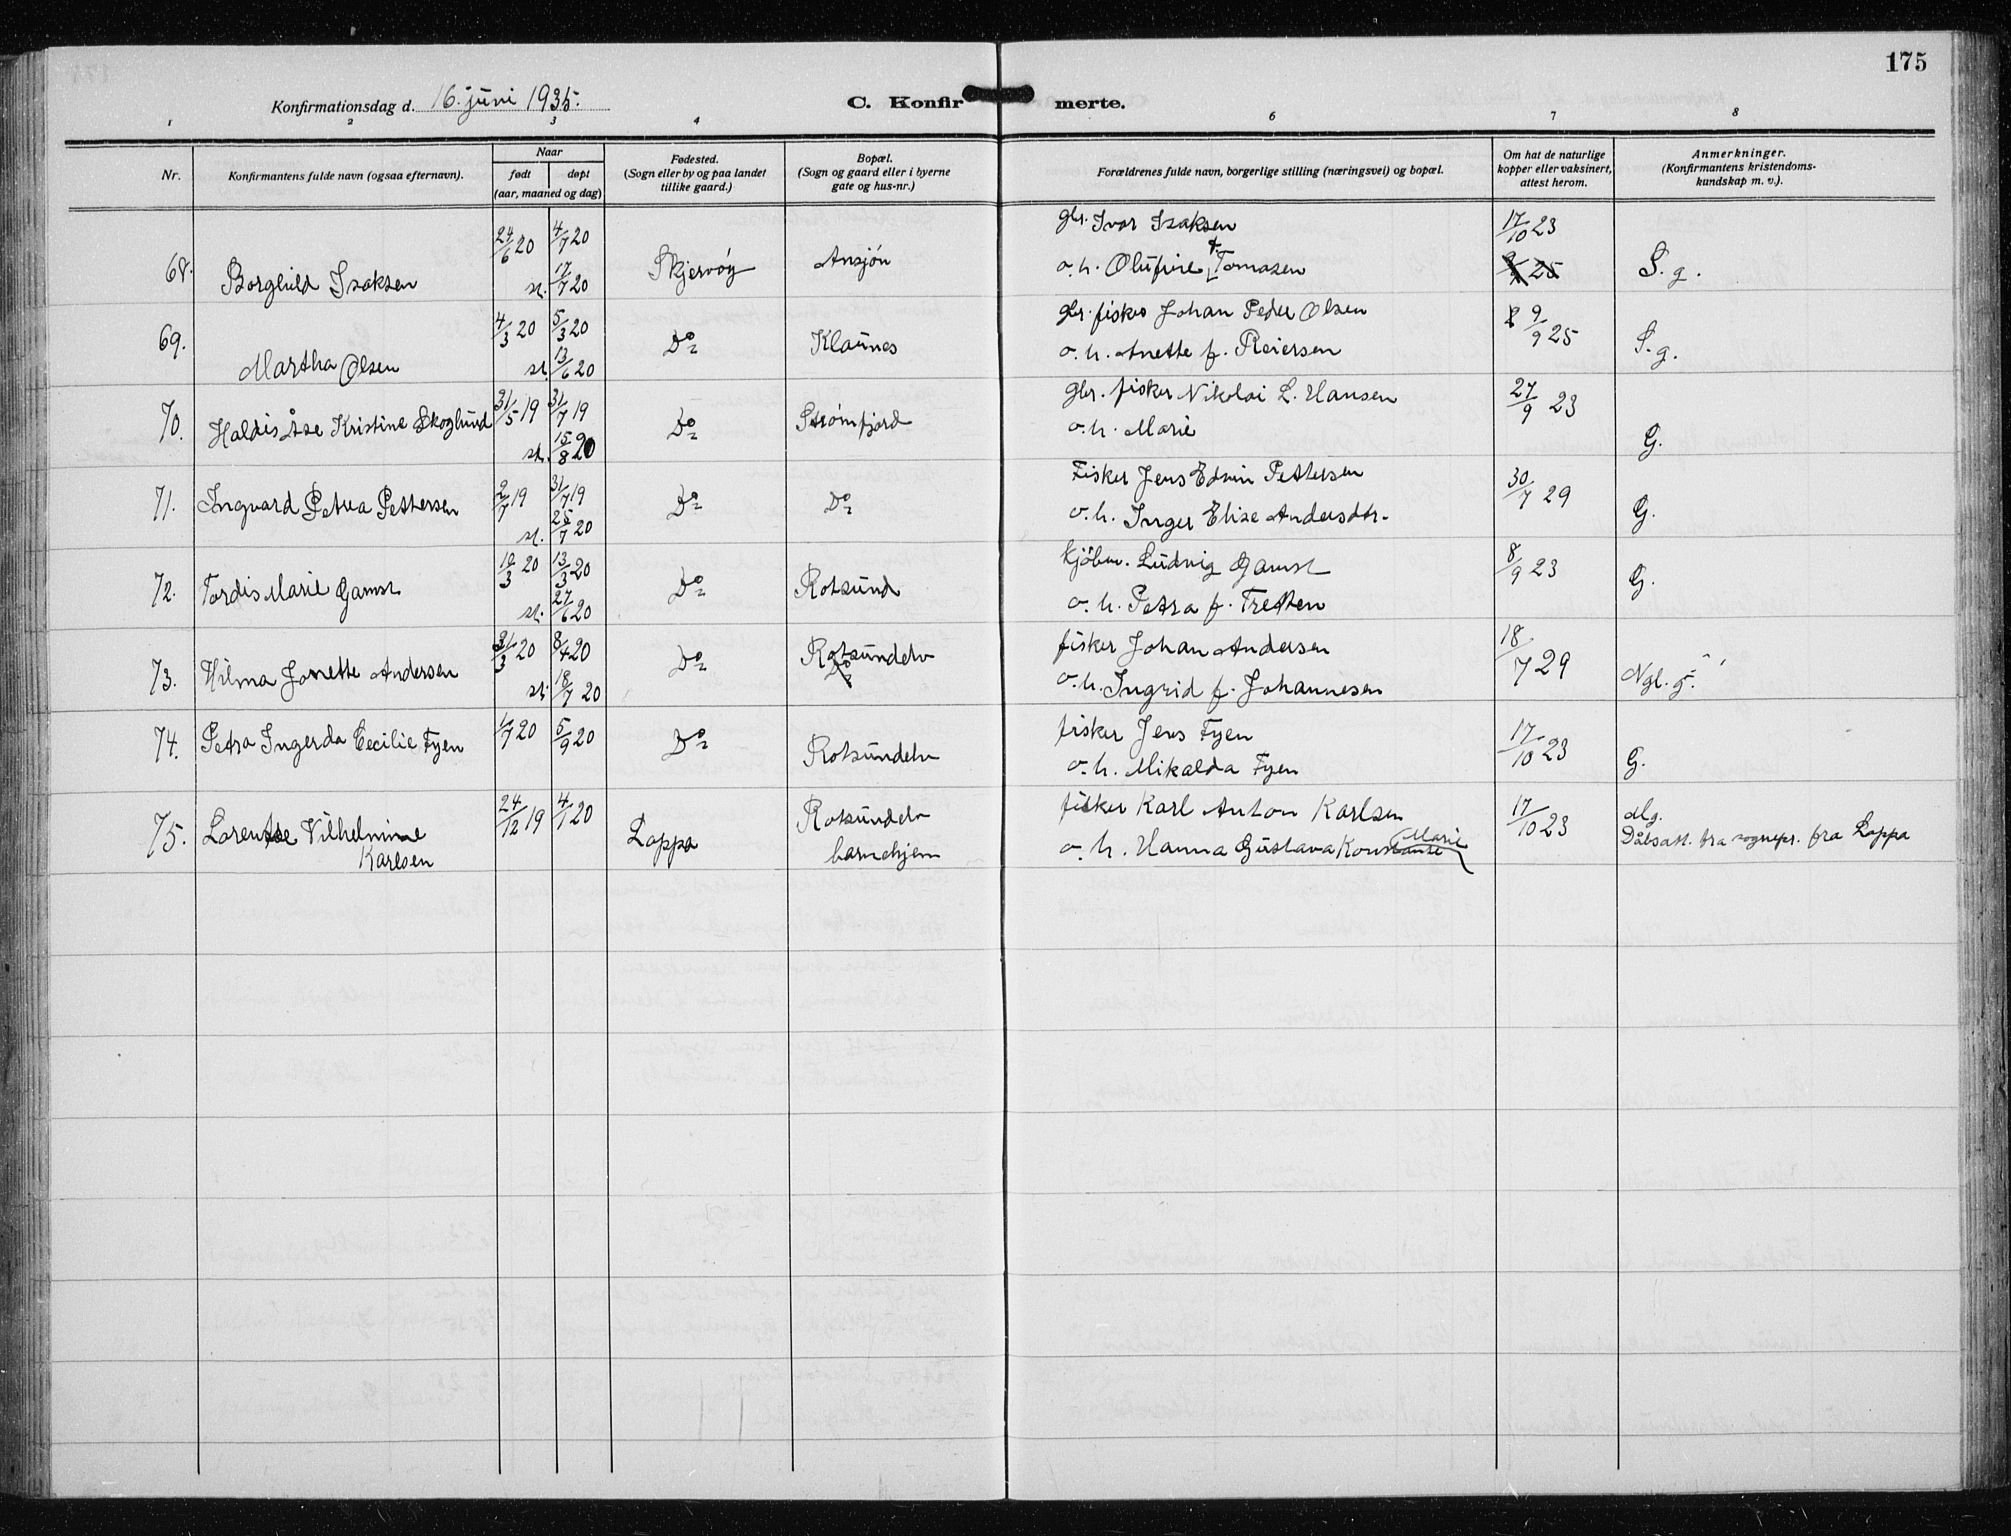 175
Konfirmationsdag d. 16. juni 1935.
C. Konfirmerte.
1 2 3 4 6 7 8
Nr.
Konfirmantens fulde navn (ogsaa efternavn).
Naar
født
døpt
(aar, maaned og dag)
Fødested.
(Sogn eller by og paa landet
tillike gaard.)
Bopæl.
(Sogn og gaard eller i byerne
gate og hus-nr.)
Forældrenes fulde navn, borgerlige stilling (næringsvei) og bopæl.
Om hat de naturlige
kopper eller vaksinert,
attest herom.
Anmerkninger.
(Konfirmantens kristendoms-
kundskap m. v.).
68. Borghild Isaksen 24/6 20 4/7 20 st. 17/7 20 Skjervøy Ansjön
gbr. Ivar Isaksen
o. h. Olufine f. Tomasen
17/10 23
S. g.
69. Martha Olsen 4/3 20 5/3 20 st. 13/6 20 Do Klaunes
gbr. fisker Johan Peder Olsen
o. h. Anette f. Reiersen
9/9 25
S. g.
70. Haldis Åse Kristine Skoglund 31/5 19 31/7 19 st. 15/8 20 Do Strømfjord
gbr. fisker Nikolai L. Hansen
o. h. Marie
27/9 23
G.
71. Ingvard Petrea Pettersen 2/7 19 31/7 19 st. 25/7 20 Do Do
Fisker Jens Edvin Pettersen
o. h. Inger Elise Andersdtr.
30/7 29
G.
72. Tordis Marie Gamst 10/3 20 13/3 20 st. 27/6 20 Do Rotsund
kjöbm. Ludvig Gamst
o. h. Petra f. Tretten
8/9 23
G.
73. Hilma Jonette Andersen 31/3 20 8/4 20 st. 18/7 20 Do Rotsundelv
fisker Johan Andersen
o. h. Ingrid f. Johannesen
18/7 29
Ngl. g.
74. Petra Ingerda Cecilie Fyen 1/7 20 5/9 20 Do Rotsundelv
fisker Jens Fyen
o. h. Mikalda Fyen
17/10 23
G.
75. Lorentse Vilhelmine
Karlsen
24/12 19 4/1 20 Loppa Rotsundelv
barnehjem
fisker Karl Anton Karlsen
o. h. Hanna Gustava Konstanse Marie
17/10 23
Mg.
Dåbsatt. fra sognepr. fra Loppa